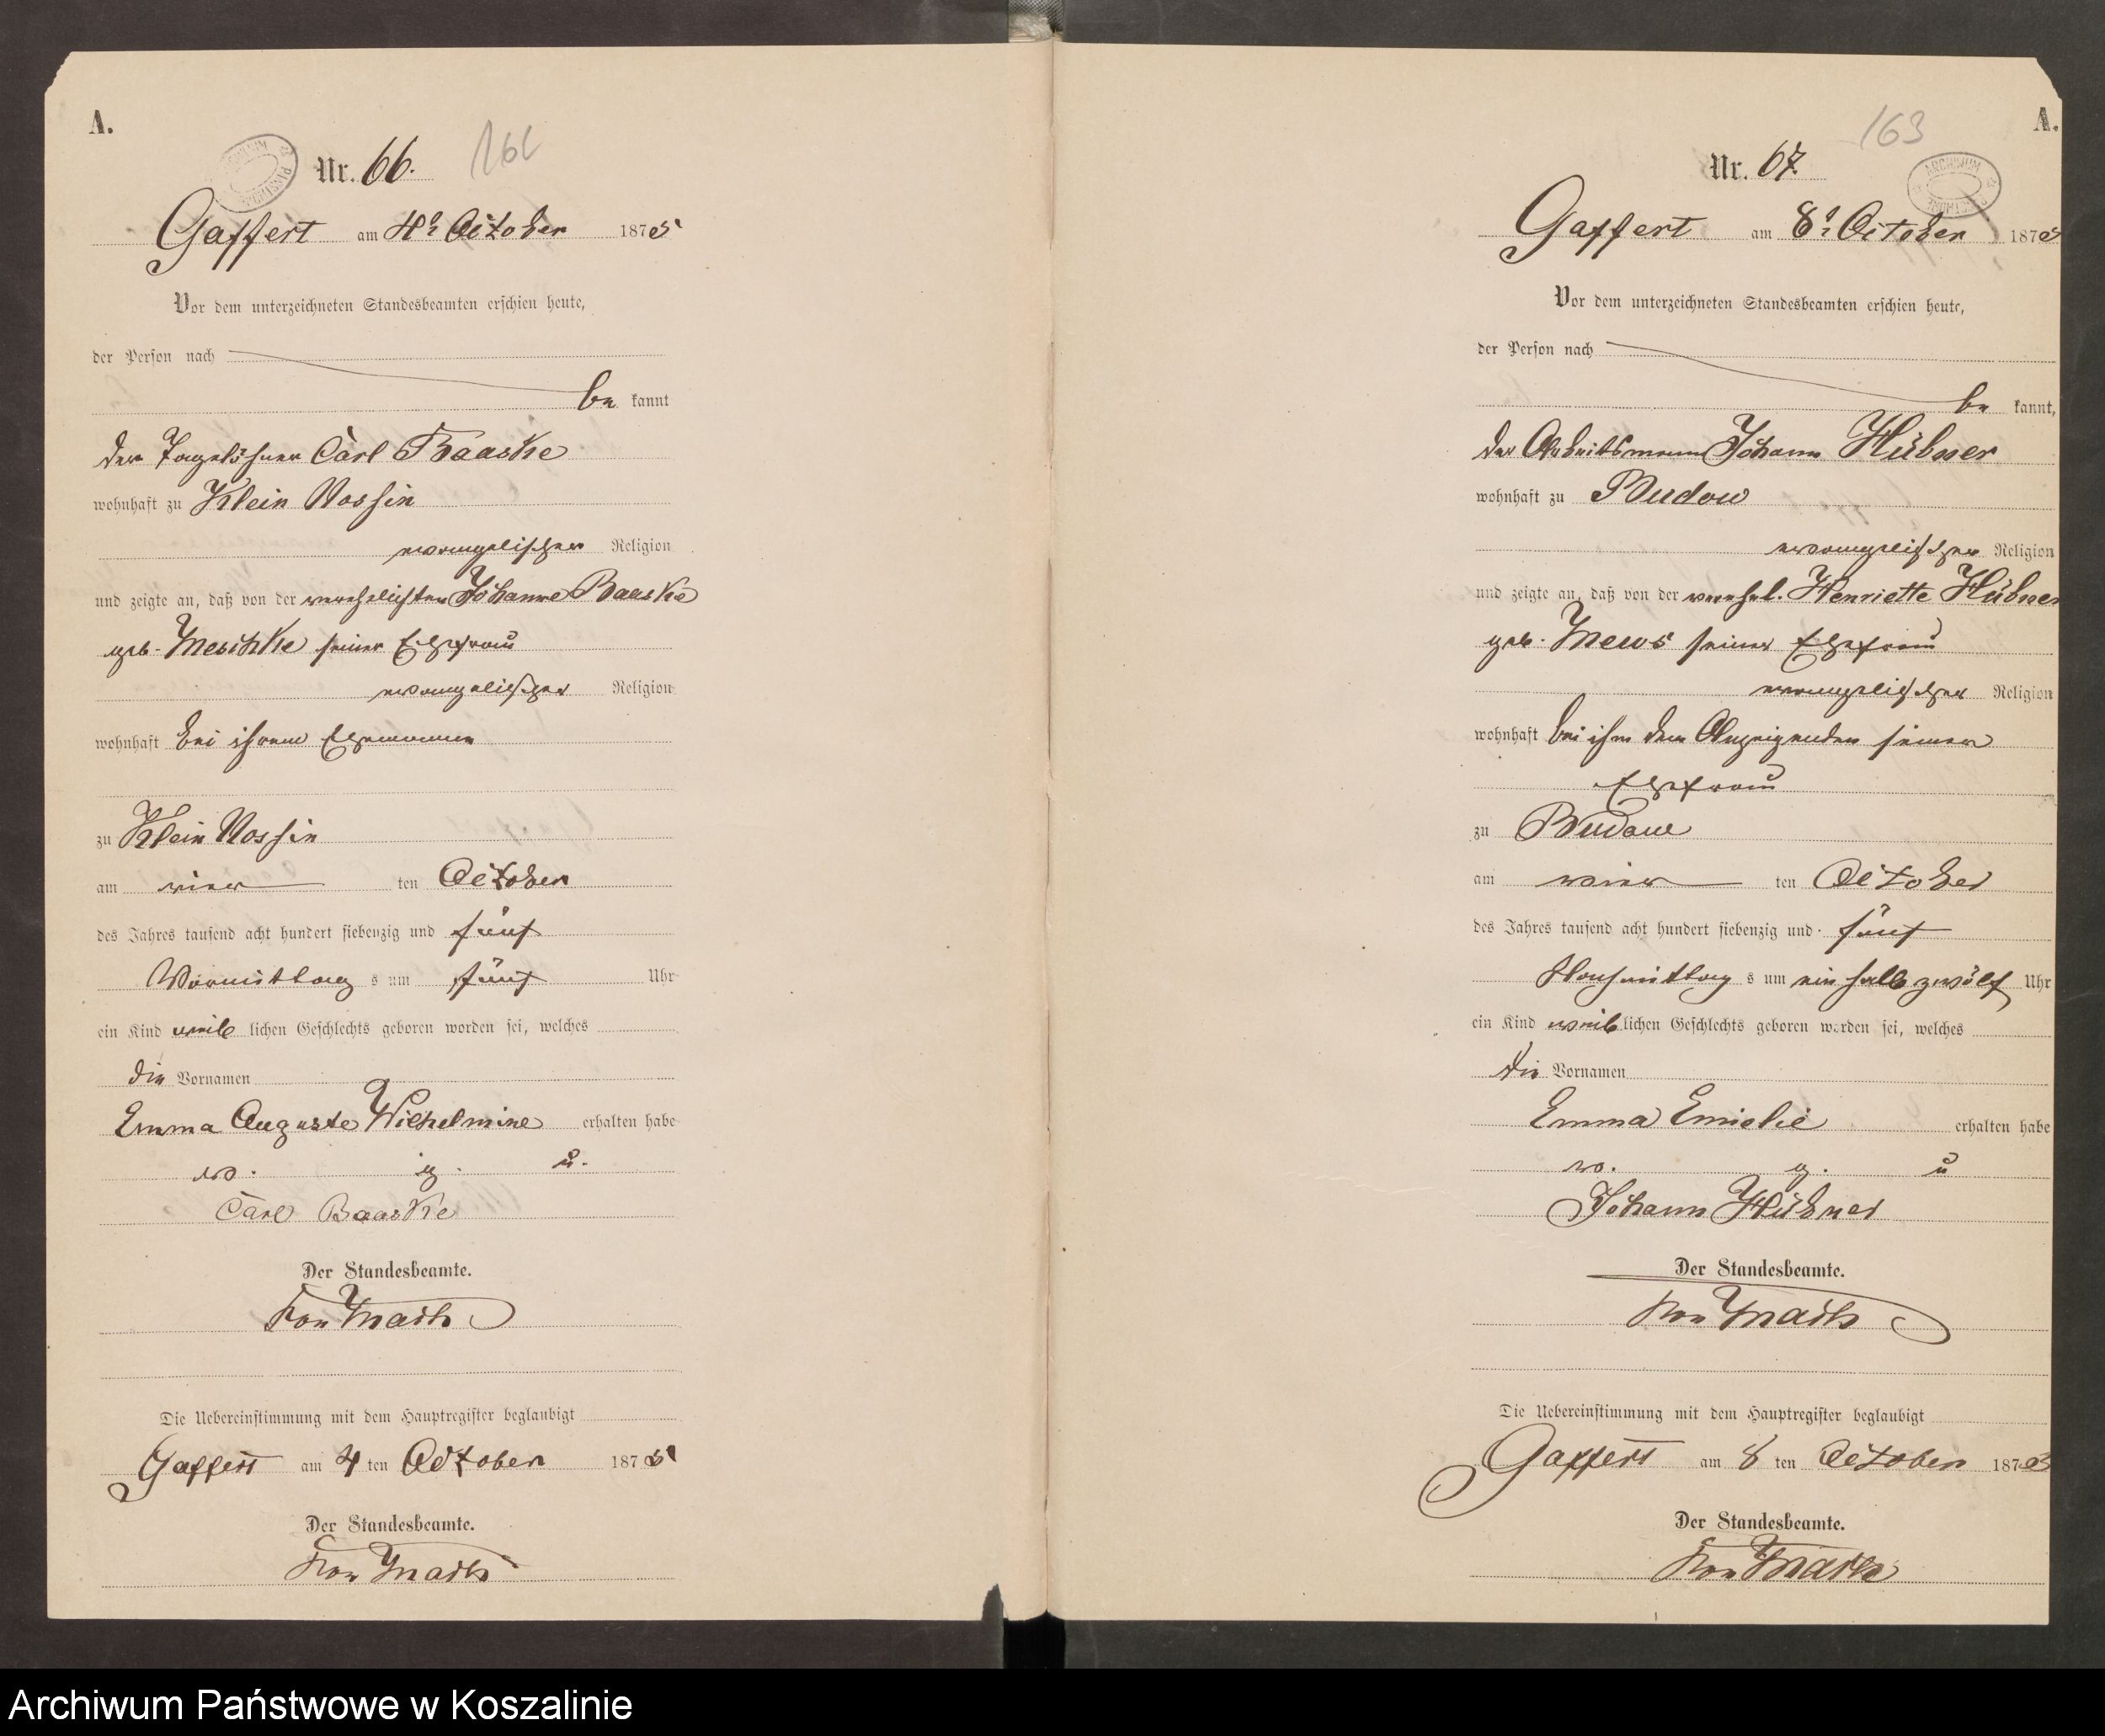 A.
Nr. 66.
Gaffert am 4t October 1875
Vor dem unterzeichneten Standesbeamten erschien heute,
der Person nach
be kannt
der Tagelöhner Carl Baaske
wohnhaft zu Klein Nossin
evangelischer Religion
und zeigte an, daß von der verehelichten Johanne Baaske
geb. Meschke seiner Ehefrau
evangelischer Religion
wohnhaft bei ihrem Ehemanne
zu Klein Nossin
am vier ten October
des Jahres tausend acht hundert siebenzig und fünf
Vormittag s um fünf Uhr
ein Kind weib lichen Geschlechts geboren worden sei, welches
die Vornamen
Emma Auguste Wilhelmine erhalten habe
v. g. u.
Carl Baaske
Der Standesbeamte.
Die Uebereinstimmung mit dem Hauptregister beglaubigt
Gaffert am 4 ten October 1875
Der Standesbeamte.
163
A.
ARCHIWUM
Nr. 67
Gaffert am 8t October 1875
Vor dem unterzeichneten Standesbeamten erschien heute,
der Person nach
be kannt,
der Arbeitsmann Johann Hübner
wohnhaft zu Budow
evangelischer Religion
und zeigte an, daß von der verehel. Henriette Hübner
geb. Mews seiner Ehefrau
evangelischer Religion
wohnhaft bei ihm dem Anzeigenden seiner
Ehefrau
zu Budow
am vier ten October
des Jahres tausend acht hundert siebenzig und fünf
Nachmittag s um ein halb zwölf Uhr
ein Kind weib lichen Geschlechts geboren worden sei, welches
die Vornamen
Emma Emielie erhalten habe
v. g. u
Johann Hübner
Der Standesbeamte.
Die Uebereinstimmung mit dem Hauptregister beglaubigt
Gaffert am 8 ten October 1875
Der Standesbeamte.
Archiwum Państwowe w Koszalinie